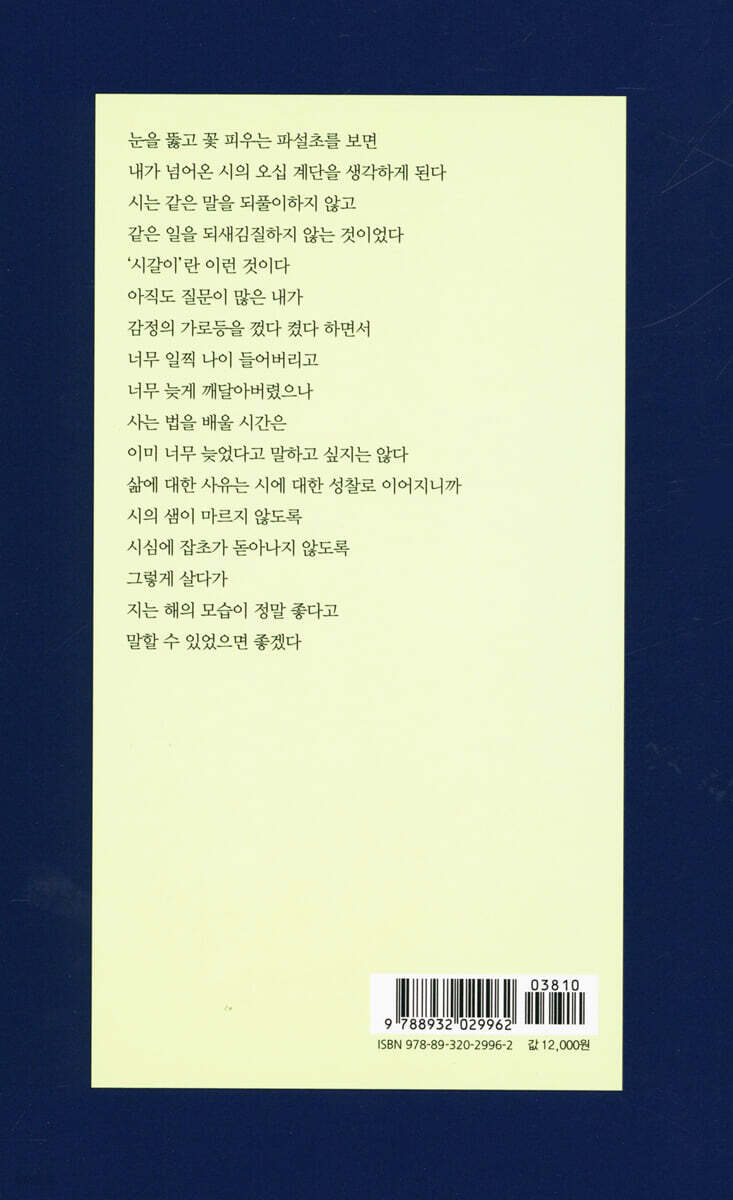 눈을 뚫고 꽃 피우는 파설초를 보면
내가 넘어온 시의 오십 계단을 생각하게 된다
시는 같은 말을 되풀이하지 않고
같은 일을 되새김질하지 않는 것이었다
‘시갈이’란 이런 것이다
아직도 질문이 많은 내가
감정의 가로등을 껐다 켰다 하면서
너무 일찍 나이 들어버리고
너무 늦게 깨달아버렸으나
사는 법을 배울 시간은
이미 너무 늦었다고 말하고 싶지는 않다
삶에 대한 사유는 시에 대한 성찰로 이어지니까
시의 샘이 마르지 않도록
시심에 잡초가 돋아나지 않도록
그렇게 살다가
지는 해의 모습이 정말 좋다고
말할 수 있었으면 좋겠다
03810
9 788932 029962
ISBN 978-89-320-2996-2 값 12,000원